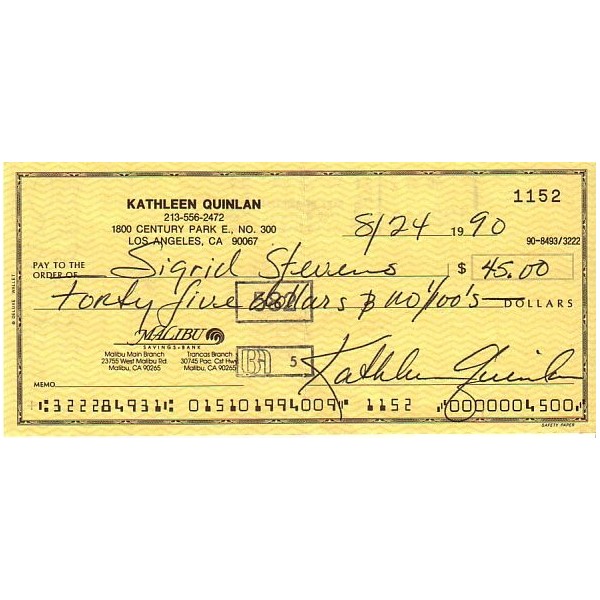 KATHLEEN QUINLAN
1152
213-556-2472
1800 CENTURY PARK E., NO. 300
LOS ANGELES, CA 90067
8/24 1990
90-8493/3222
PAY TO THE
ORDER OF Sigrid Stevens $ 45.00
Forty five dollars & no/100's DOLLARS
582
MALIBU
SAVINGS BANK
Malibu Main Branch
23755 West Malibu Rd.
Malibu, CA 90265
Trancas Branch
30745 Pac. Cst Hwy.
Malibu, CA 90265
BA 5
MEMO
Kathleen Quinlan
322284931 015101994009 1152 0000004500
SAFETY PAPER
© DELUXE WALLET